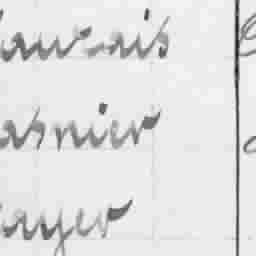 ancais
asnier
ayer